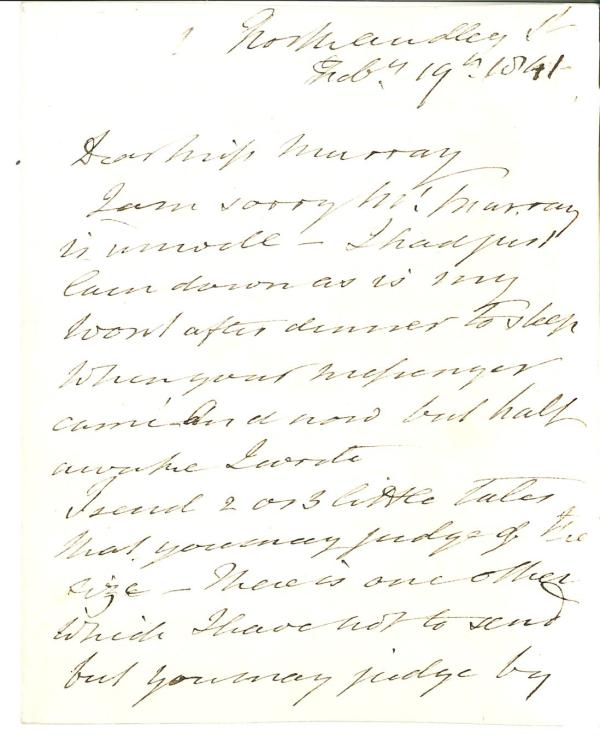 Northaudley St
Feby 19th 1841
Dear Miss Murray
I am sorry Mr. Murray
is unwell – I had just
lain down as is my
wont after dinner to sleep
when your messenger
came and now but half
awake I write
I send 2 or 3 little tales
that you may judge of the
size – There is one other
which I have not to send
but you may judge by